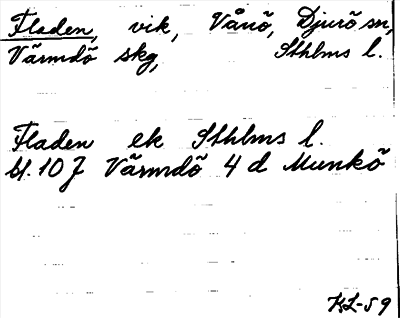 Fladen, vik, Vånö, Djurö sn,
Värmdö skg, Sthlms l.
Fladen ek Sthlms l.
bl. 107 Värmdö 4 d Munkö
KL-59